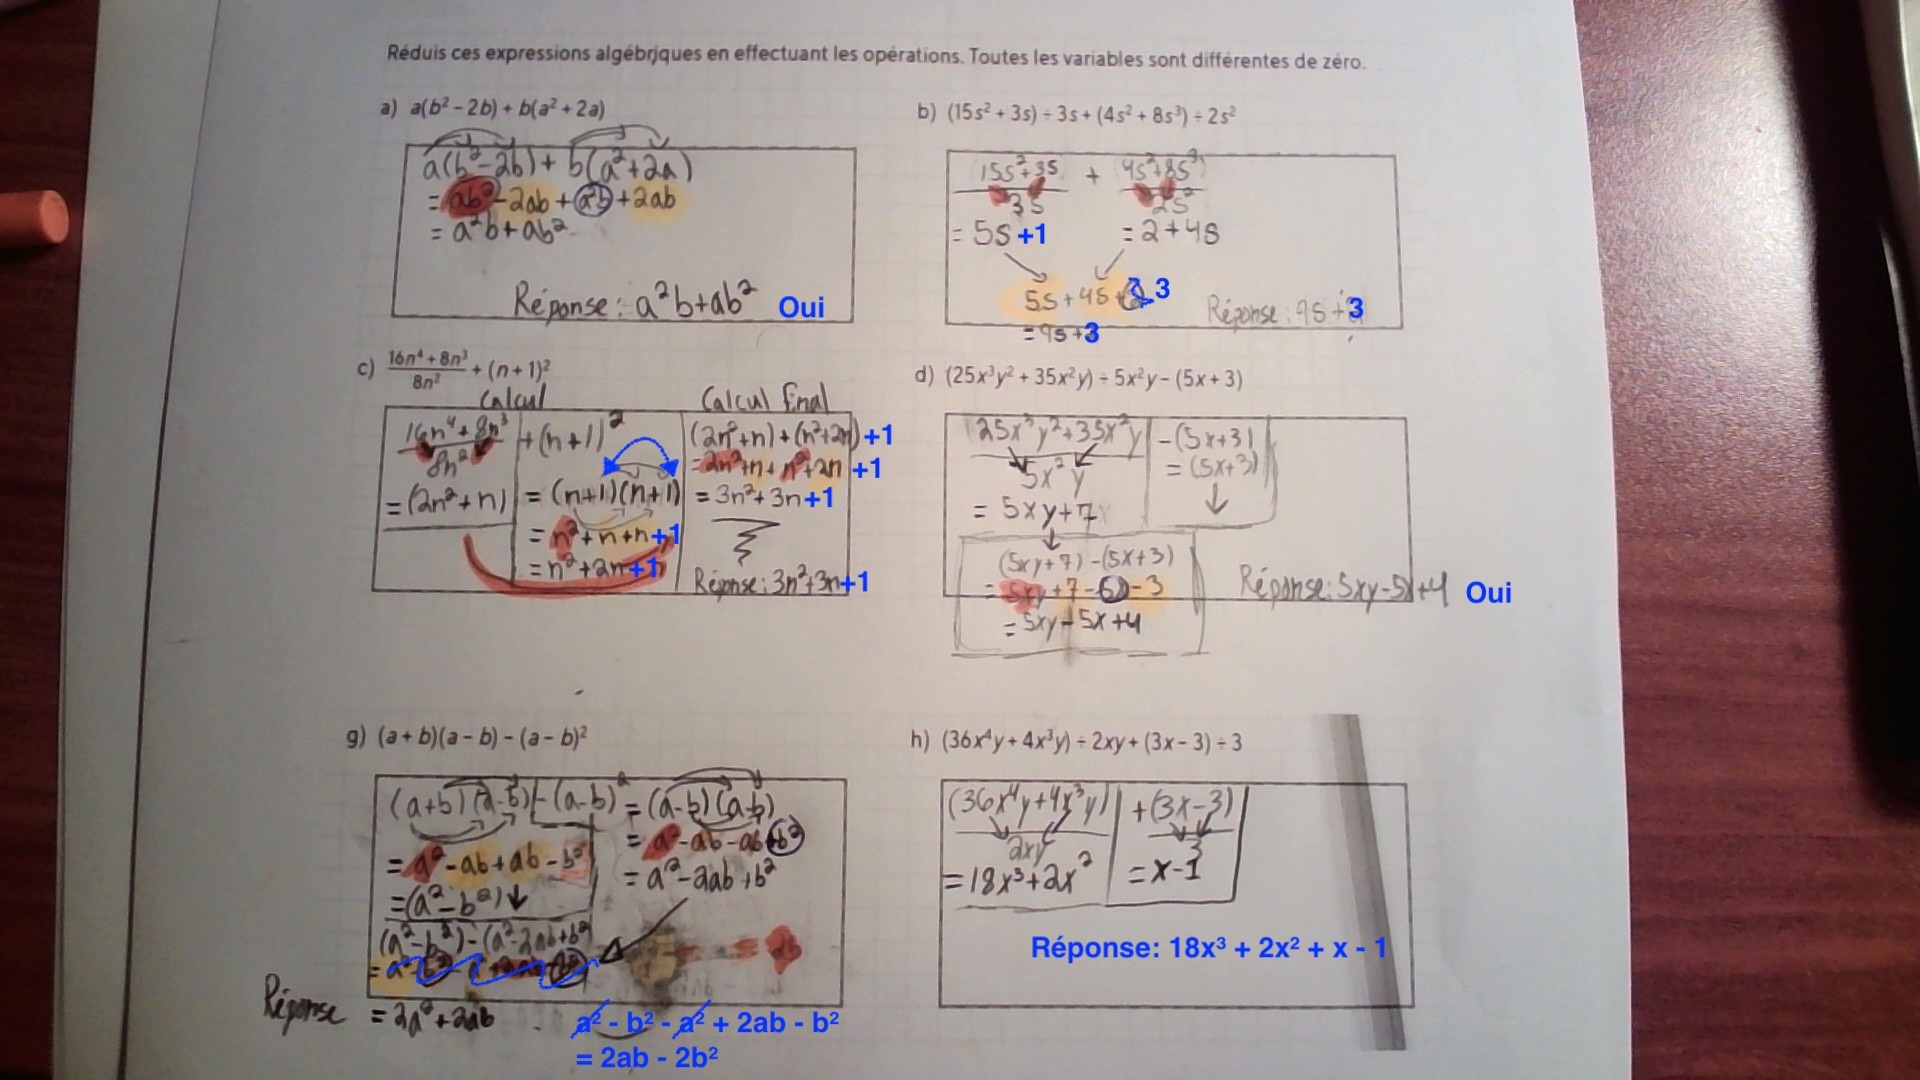 Réduis ces expressions algébriques en effectuant les opérations. Toutes les variables sont différentes de zéro.
a) a(b² – 2b) + b(a² + 2a)
a(b²-2b) + b(a²+2a)
= ab²-2ab+a²b+2ab
= a²b+ab²
Réponse: a²b+ab² Oui
b) (15s² + 3s) ÷ 3s + (4s² + 8s³) ÷ 2s²
15s²+3s + 4s²+8s³
3s 2s²
= 5s +1 = 2+4s
5s + 4s + 3
= 9s + 3
Réponse: 9s + 3
c) 16n⁴ + 8n³ / 8n² + (n + 1)²
Calcul Calcul final
16n⁴ + 8n³ / 8n²
= (2n² + n)
+ (n+1)²
= (n+1)(n+1)
= n²+n+n+1
= n²+2n+1
(2n²+n) + (n²+2n)+1
= 2n²+n+n²+2n +1
= 3n²+3n+1
Réponse: 3n²+3n+1
d) (25x³y² + 35x²y) ÷ 5x²y – (5x + 3)
(25x³y²+35x²y
5x²y
= 5xy+7
-(5x+3)
= (5x+3)
(5xy+7) -(5x+3)
= 5xy+7-5x-3
= 5xy-5x+4
Réponse: 5xy-5x+4 Oui
g) (a + b)(a – b) – (a – b)²
(a+b)(a-b) -(a-b)² = (a-b)(a-b)
= a²-ab+ab-b²
= (a²-b²)
= a²-ab-ab+b²
= a²-2ab+b²
(a²-b²)-(a²-2ab+b²
Réponse = 2a²+2ab
a² - b² - a² + 2ab - b²
= 2ab - 2b²
h) (36x⁴y + 4x³y) ÷ 2xy + (3x – 3) ÷ 3
(36x⁴y+4x³y) +(3x-3)
2xy 3
= 18x³+2x² = x-1
Réponse: 18x³ + 2x² + x - 1